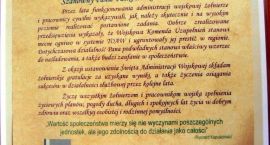 Szanowny Panie
Przez lata funkcjonowania administracji wojskowej żołnierze
i pracownicy cywilni wykazywali, jak należy skutecznie i na wysokim
poziomie realizować postawione zadania. Dobrze zrealizowane
przedsięwzięcia wykazały, że Wojskowa Komenda Uzupełnień stanowi
mocne ogniwo w systemie i ugruntowały jej prestiż w regionie.
Dotychczasowa działalność Pana podwładnych stanowi właściwy wzorzec
do naśladowania, a także budzi zaufanie w społeczeństwie.
Z okazji ustanowienia Święta Administracji Wojskowej składam
żołnierskie gratulacje za uzyskane wyniki, a także życzenia osiągania
sukcesów w działalności służbowej przez kolejne lata.
Życzę wszystkim żołnierzom i pracownikom wojska spełnienia
życiowych planów, pogody ducha, długich i spokojnych lat życia w dobrym
zdrowiu oraz wszelkiej osobistej i rodzinnej pomyślności.
„Wartość społeczeństwa mierzy się nie wyczynami poszczególnych
jednostek, ale jego zdolnością do działania jako całości"